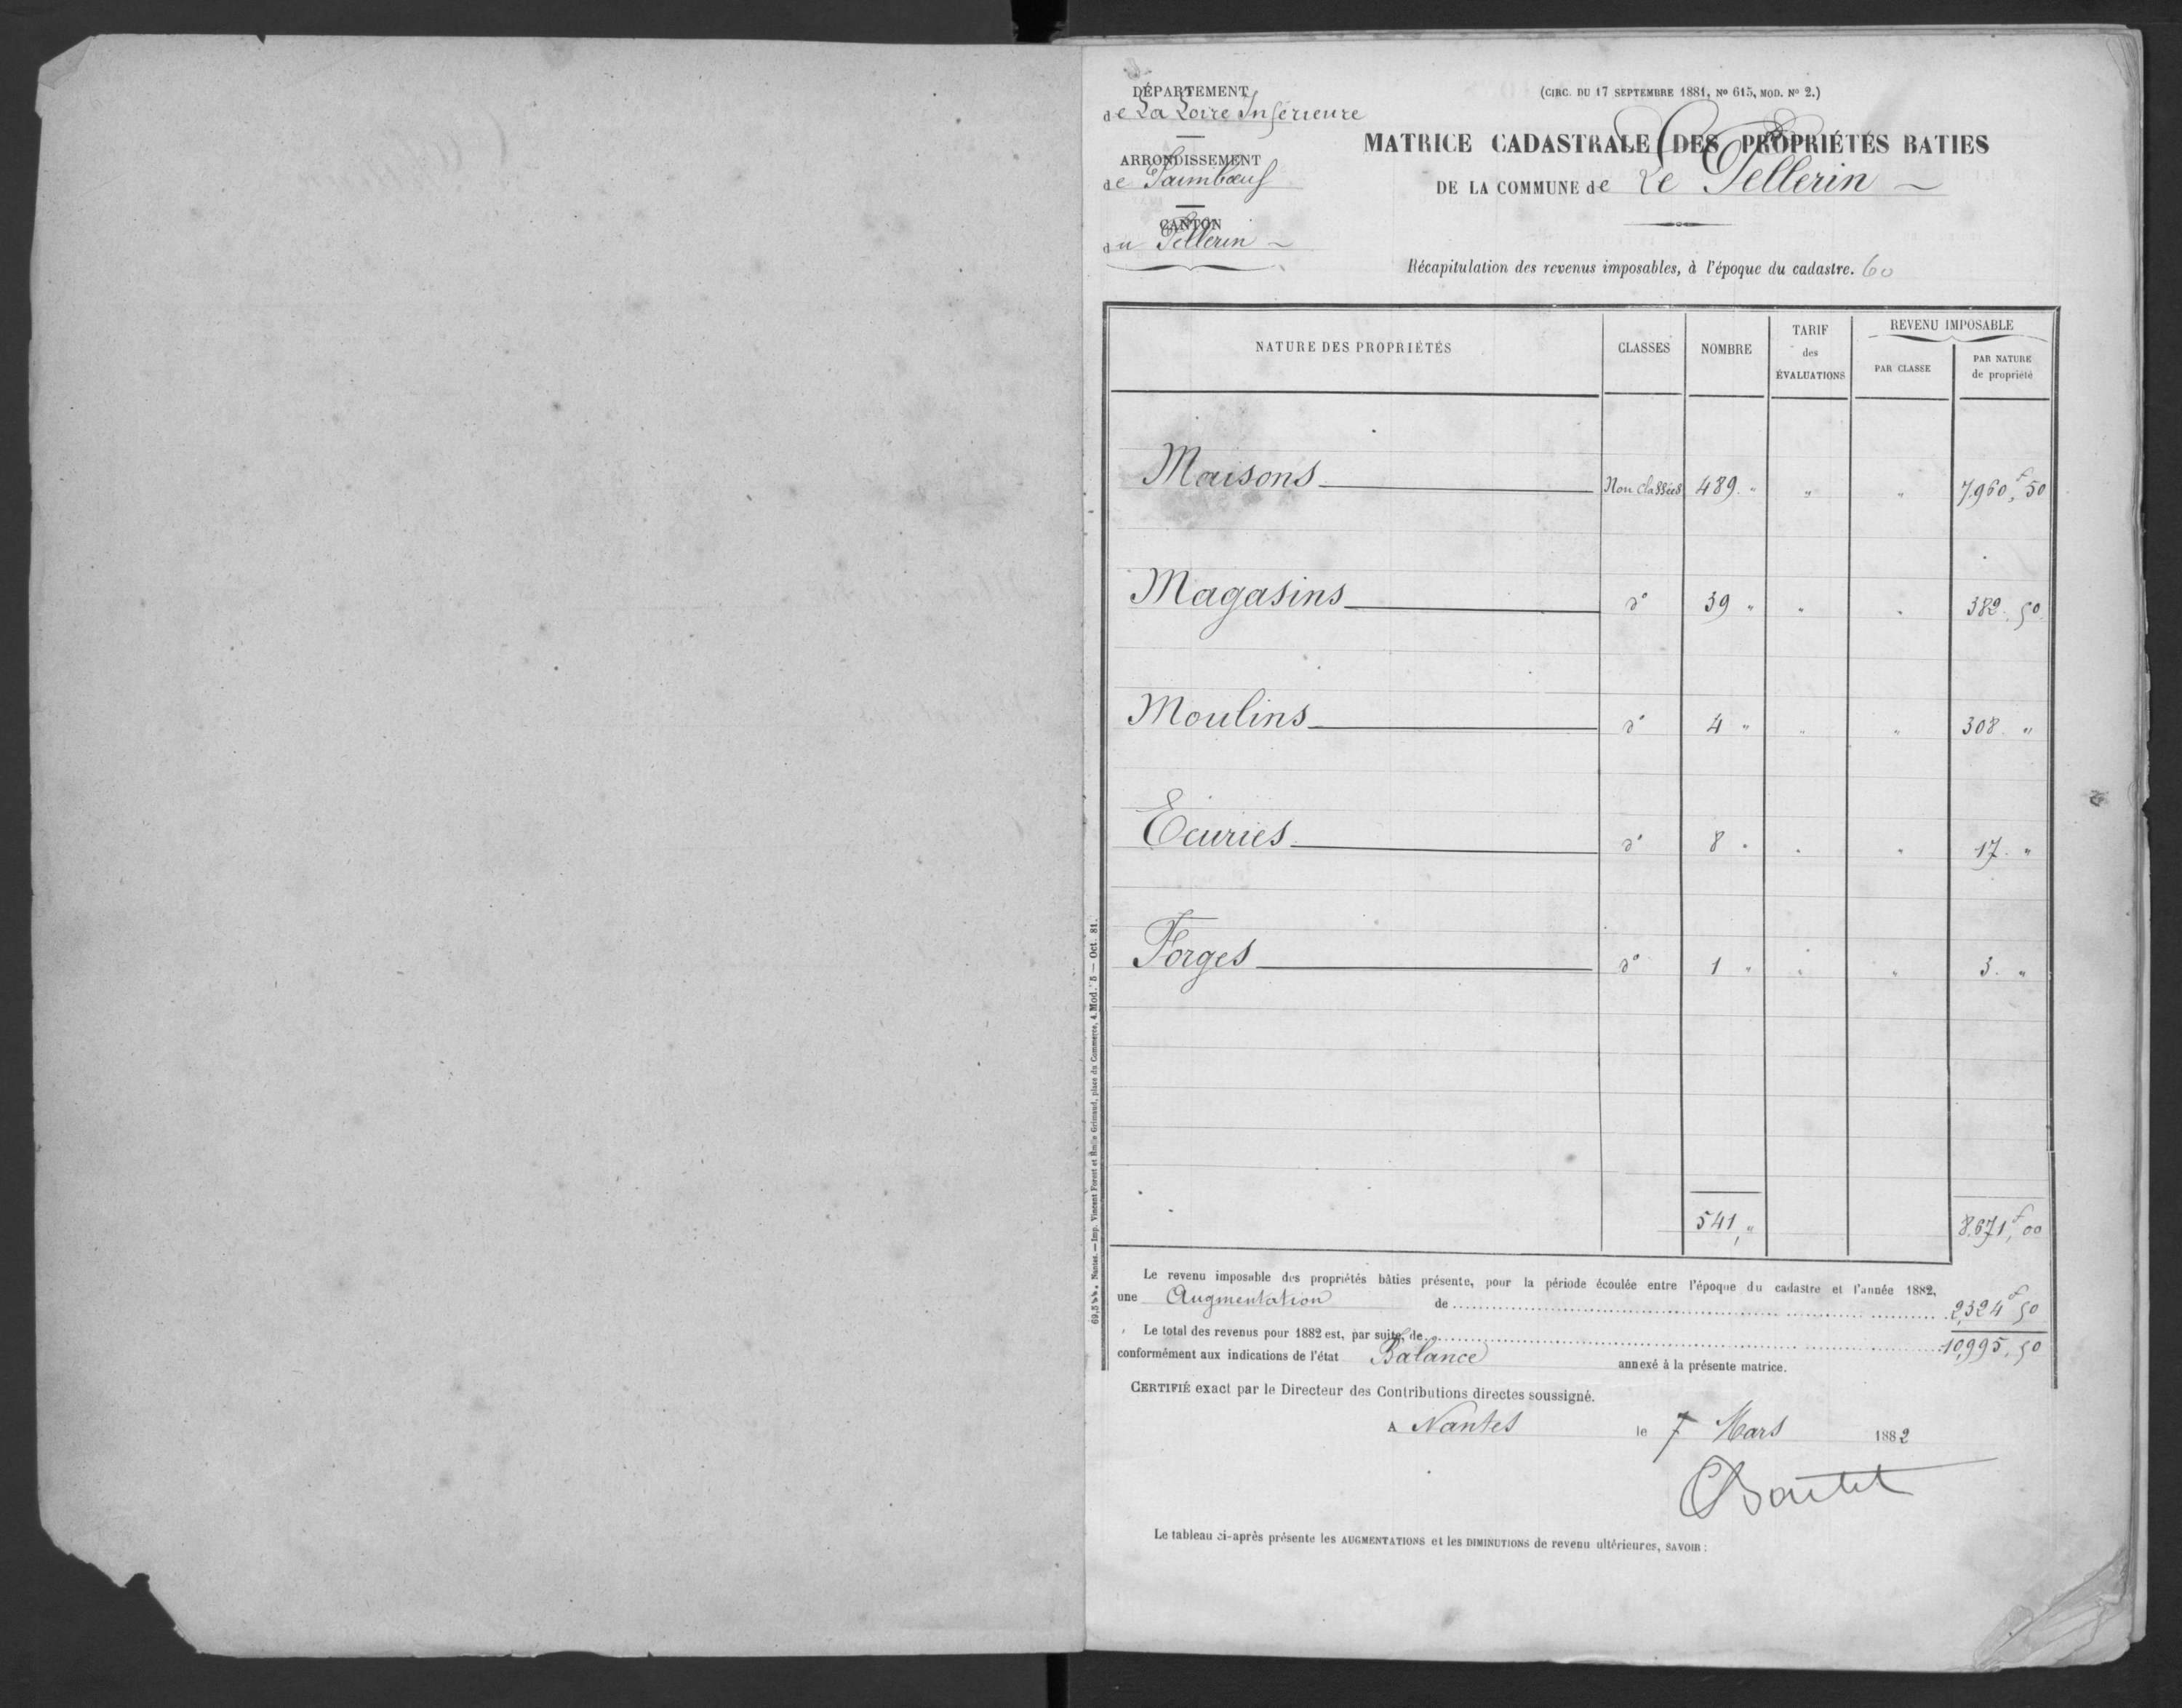 DÉPARTEMENT
de La Loire Inférieure
ARRONDISSEMENT
de Paimbœuf
CANTON
du Pellerin
(CIRC. DU 17 SEPTEMBRE 1881, Nº 615, MOD. Nº 2.)
MATRICE CADASTRALE DES PROPRIÉTÉS BATIES
DE LA COMMUNE de Le Pellerin
Récapitulation des revenus imposables, à l'époque du cadastre. 60
NATURE DES PROPRIÉTÉS CLASSES NOMBRE TARIF des ÉVALUATIONS REVENU IMPOSABLE PAR CLASSE PAR NATURE de propriété
Maisons Non classées 489 " " " 7,960 f 50
Magasins dº 39 " " " 382. 50
Moulins dº 4 " " " 308. "
Ecuries dº 8 " " " 17. "
Forges dº 1 " " " 3. "
541, " 8,671, f 00
Le revenu imposable des propriétés bâties présente, pour la période écoulée entre l'époque du cadastre et l'année 1882,
une Augmentation de 2,324 f 50
Le total des revenus pour 1882 est, par suite, de 10,995, 50
conformément aux indications de l'état Balance annexé à la présente matrice.
CERTIFIÉ exact par le Directeur des Contributions directes soussigné.
A Nantes le 7 Mars 1882
Le tableau ci-après présente les AUGMENTATIONS et les DIMINUTIONS de revenu ultérieures, SAVOIR :
Nantes. — Imp. Vincent Forest et Émile Grimaud, place du Commerce, 4. Mod. 5 — Oct. 81.